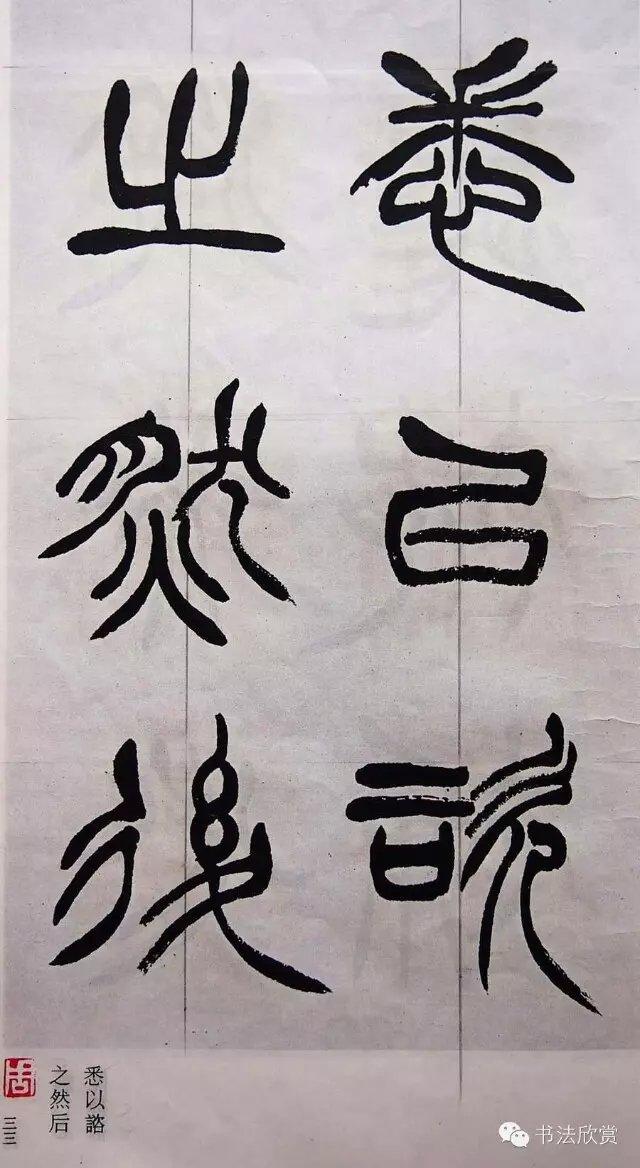 悉以諮
之然後
悉以諮
之然后
周
三三
书法欣赏